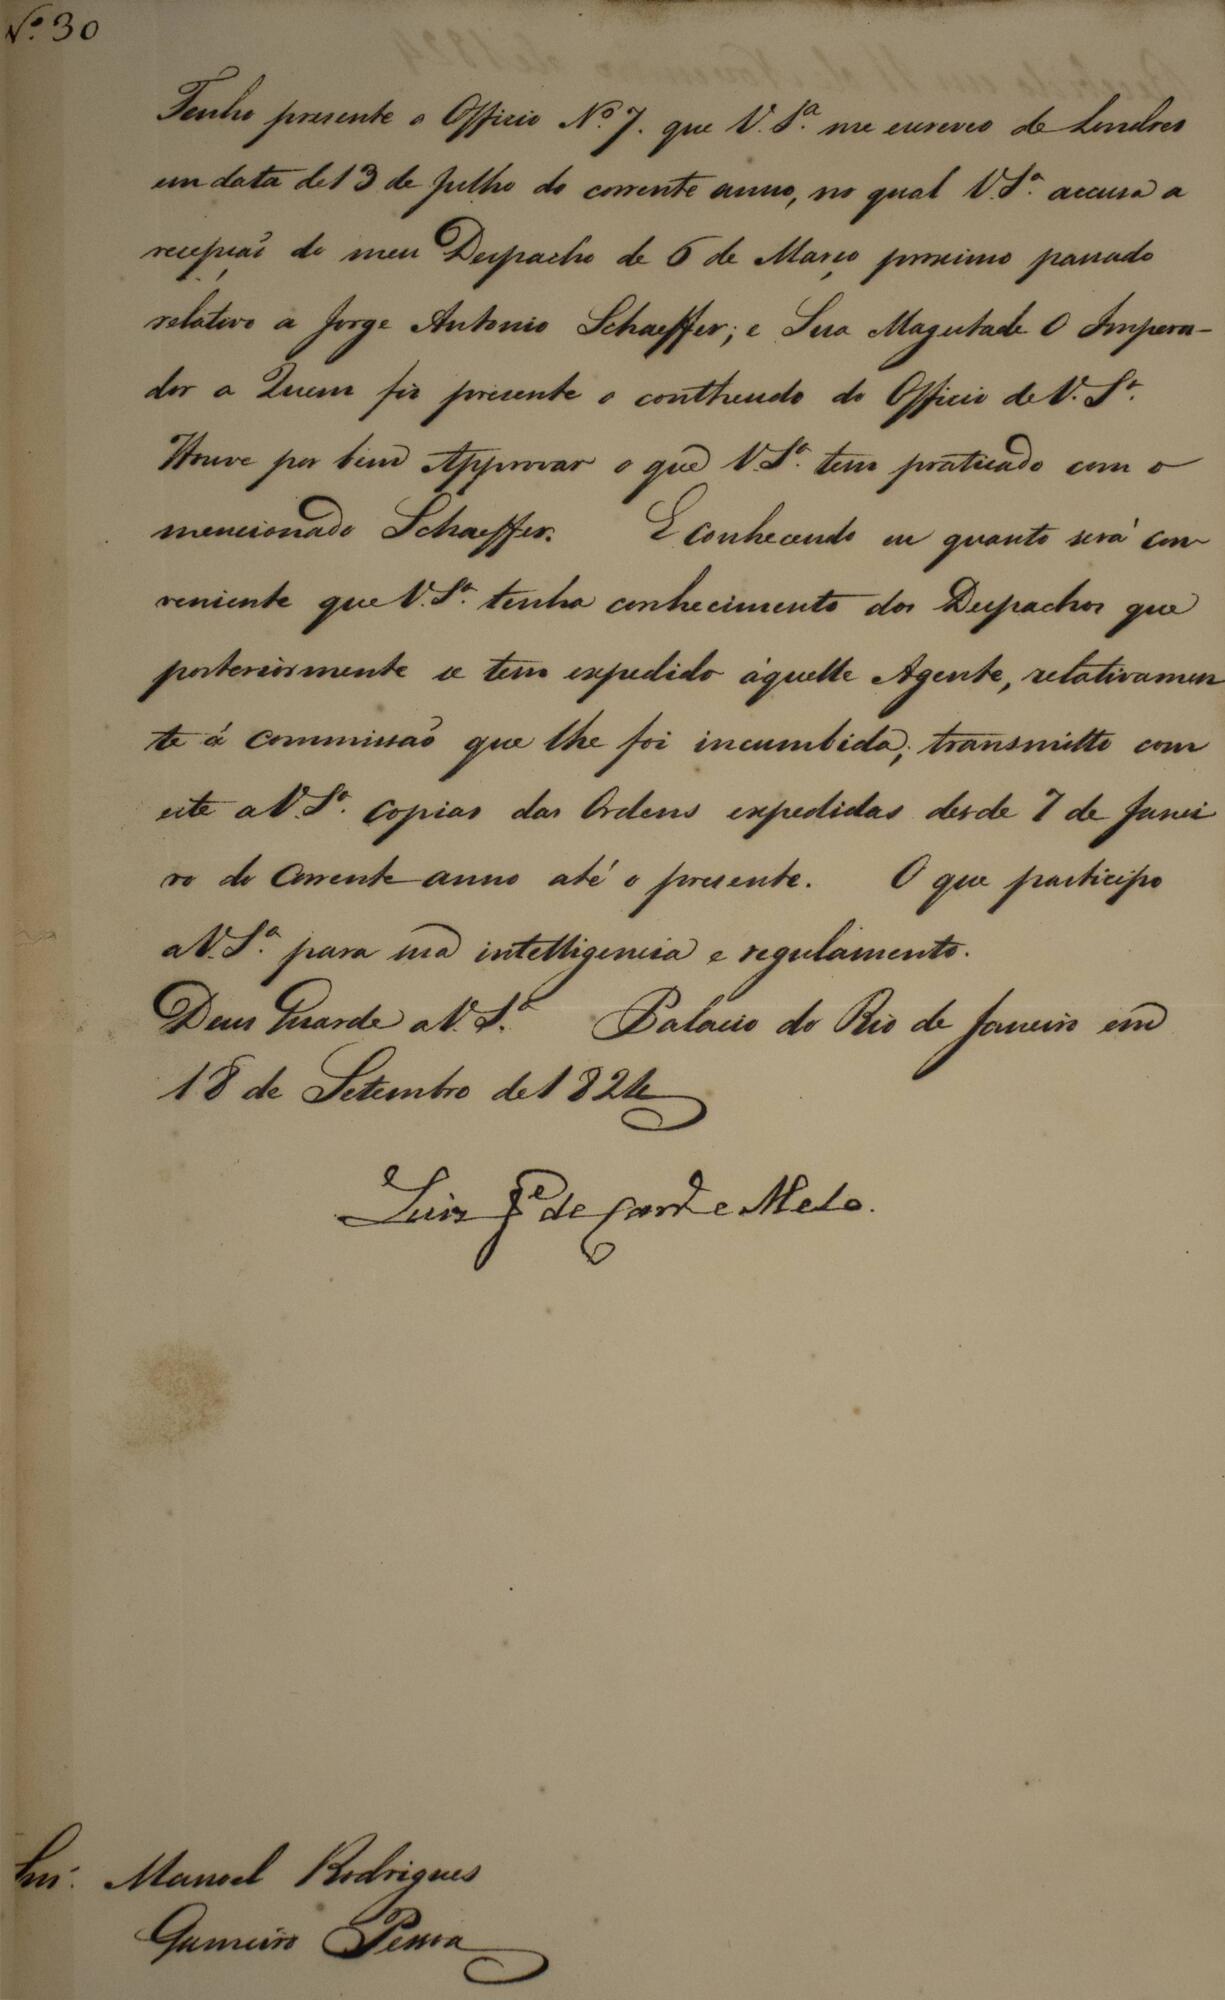 Nº 30
Tenho presente o Officio Nº 7. que V. Sª. me escreveo de Londres
em data de 13 de Julho do corrente anno, no qual V. Sª. accusa a
recepção do meu Despacho de 6 de Março proximo passado
relativo a Jorge Antonio Schaeffer; e Sua Magestade O Impera-
dor a Quem fiz presente o contheudo do Officio de V. Sª.
Houve por bem Approvar o que V. Sª. tem praticado com o
mencionado Schaeffer. E conhecendo eu quanto será con
veniente que V. Sª. tenha conhecimento dos Despachos que
posteriormente se tem expedido áquelle Agente, relativamen
te á commissão que lhe foi incumbida; transmitto com
este a V. Sª. copias das Ordens expedidas desde 7 de Janei
ro do corrente anno até o presente. O que participo
a V. Sª. para sua intelligencia e regulamento.
Deus Guarde a V. Sª. Palacio do Rio de Janeiro em
18 de Setembro de 1824
Luiz Jᵉ de Carvº e Mello.
Snr. Manoel Rodrigues
Gameiro Pessoa